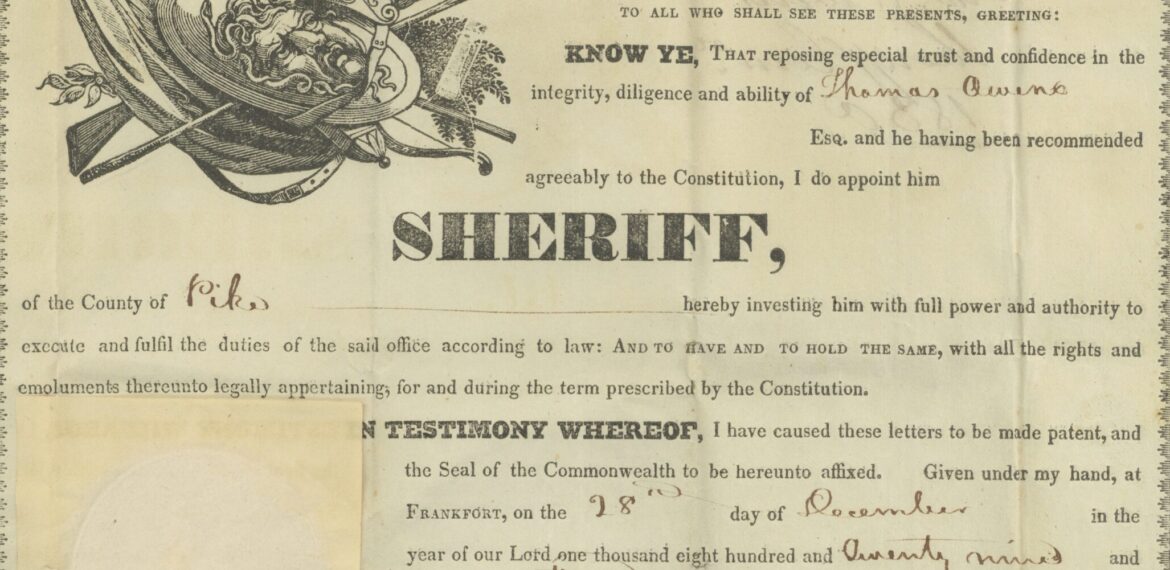 TO ALL WHO SHALL SEE THESE PRESENTS, GREETING:
KNOW YE, THAT reposing especial trust and confidence in the
integrity, diligence and ability of Thomas Owens
ESQ. and he having been recommended
agreeably to the Constitution, I do appoint him
SHERIFF,
of the County of Pike hereby investing him with full power and authority to
execute and fulfil the duties of the said office according to law: AND TO HAVE AND TO HOLD THE SAME, with all the rights and
emoluments thereunto legally appertaining, for and during the term prescribed by the Constitution.
N TESTIMONY WHEREOF, I have caused these letters to be made patent, and
the Seal of the Commonwealth to be hereunto affixed. Given under my hand, at
FRANKFORT, on the 28 day of December in the
year of our Lord one thousand eight hundred and twenty nine and